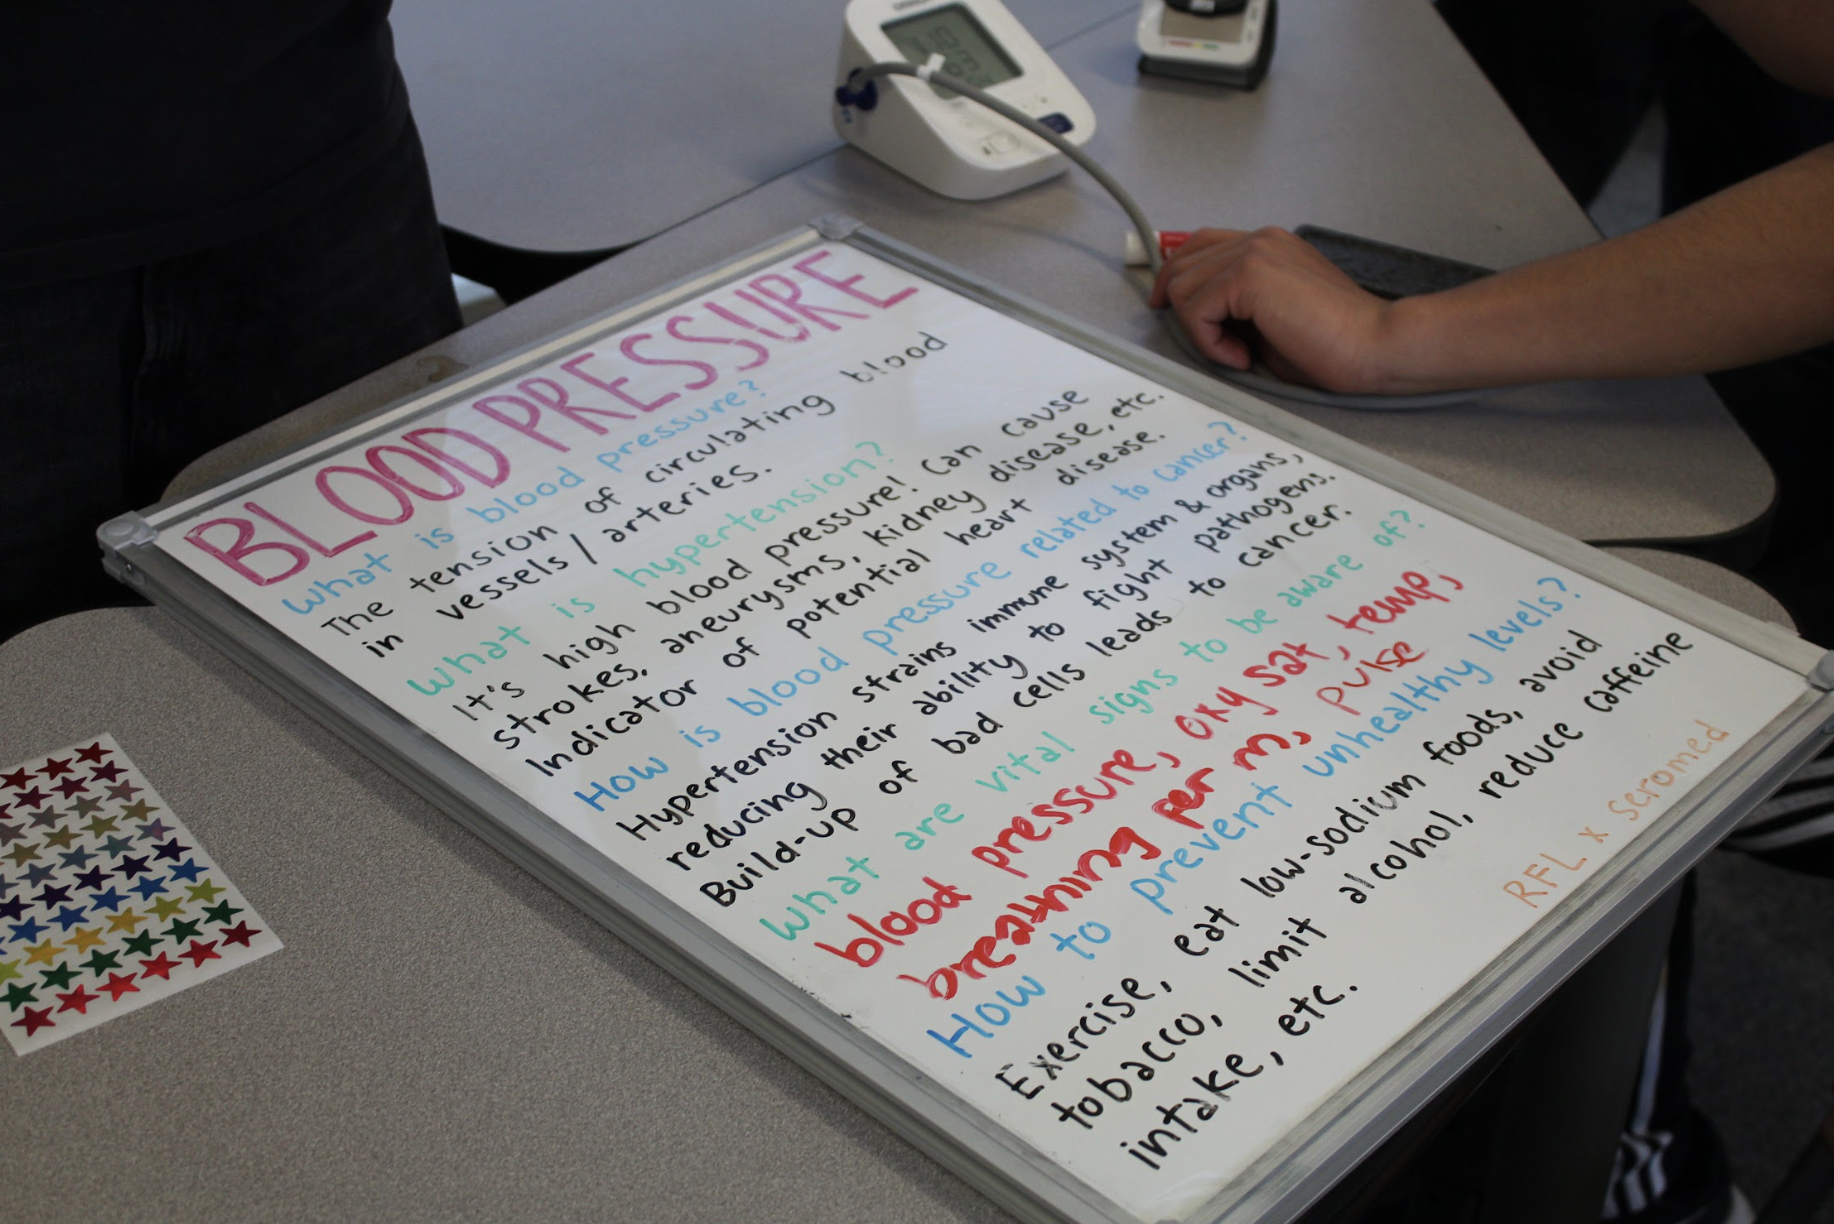 BLOOD PRESSURE
What is blood pressure?
The tension of circulating blood
in vessels / arteries.
What is hypertension?
It's high blood pressure! Can cause
strokes, aneurysms, kidney disease, etc.
Indicator of potential heart disease.
How is blood pressure related to cancer?
Hypertension strains immune system & organs,
reducing their ability to fight pathogens.
Build-up of bad cells leads to cancer.
What are vital signs to be aware of?
blood pressure, oxy sat, temp,
breathing per m, pulse
How to prevent unhealthy levels?
Exercise, eat low-sodium foods, avoid
tobacco, limit alcohol, reduce caffeine
intake, etc.
RFL x seromed